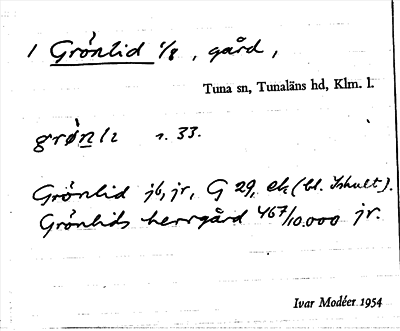 1 Grönlid 1/8, gård,
Tuna sn, Tunaläns hd, Klm. l.
s. 33.
Grönlid jb, jr, G 29, ek (bl. Ishult).
Grönlids herrgård 467/10.000 jr.
Ivar Modéer 1954